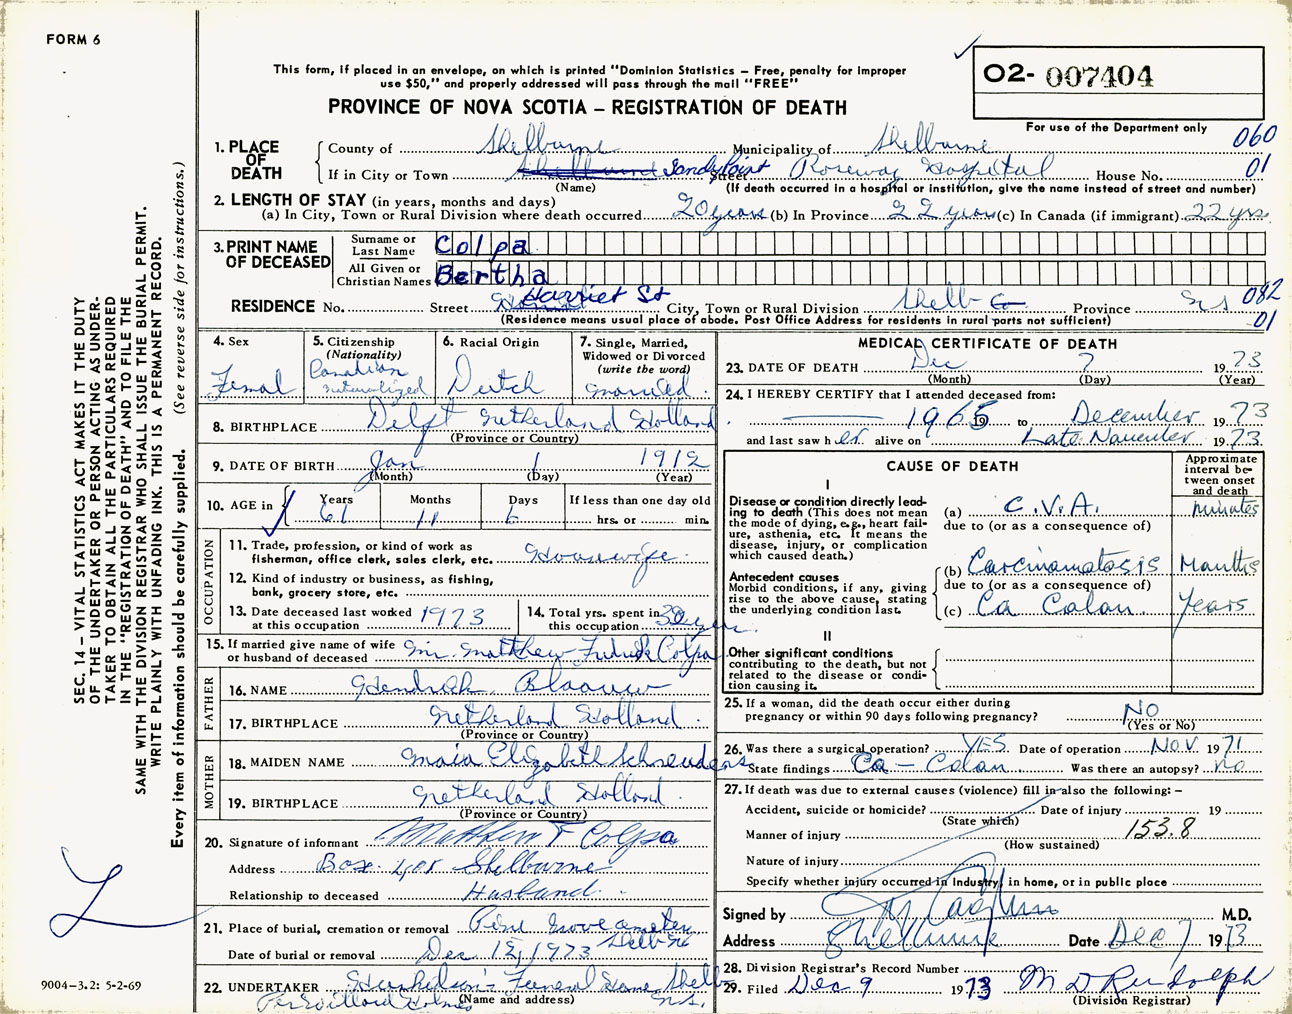 FORM 6
This form, if placed in an envelope, on which is printed "Dominion Statistics – Free, penalty for improper
use $50," and properly addressed will pass through the mail "FREE"
O2- 007404
PROVINCE OF NOVA SCOTIA – REGISTRATION OF DEATH
For use of the Department only
060
01
1. PLACE OF DEATH
County of Shelburne Municipality of Shelburne
If in City or Town Shelburne Sandy Point Street Roseway Hospital House No.
(Name) (If death occurred in a hospital or institution, give the name instead of street and number)
2. LENGTH OF STAY (in years, months and days)
(a) In City, Town or Rural Division where death occurred 20 years (b) In Province 22 years (c) In Canada (if immigrant) 22 yrs.
3. PRINT NAME OF DECEASED
Surname or Last Name Colpa
All Given or Christian Names Bertha
RESIDENCE No. Street Harriet St City, Town or Rural Division Shelb Province N S
082
01
(Residence means usual place of abode. Post Office Address for residents in rural parts not sufficient)
4. Sex
Femal
5. Citizenship
(Nationality)
Canadian
naturalized
6. Racial Origin
Dutch
7. Single, Married,
Widowed or Divorced
(write the word)
married
8. BIRTHPLACE Delft Netherland Holland
(Province or Country)
9. DATE OF BIRTH Jan 1 1912
(Month) (Day) (Year)
10. AGE in
Years Months Days If less than one day old
61 11 6 hrs. or min.
OCCUPATION
11. Trade, profession, or kind of work as
fisherman, office clerk, sales clerk, etc. Housewife
12. Kind of industry or business, as fishing,
bank, grocery store, etc.
13. Date deceased last worked
at this occupation 1973
14. Total yrs. spent in
this occupation 30 years
15. If married give name of wife
or husband of deceased Mr. Matthew Fredrick Colpa
FATHER
16. NAME Hendrick Blaauw
17. BIRTHPLACE Netherland Holland
(Province or Country)
MOTHER
18. MAIDEN NAME Maria Elizabeth Schreuders
19. BIRTHPLACE Netherland Holland
(Province or Country)
20. Signature of informant Matthew F Colpa
Address Box 408 Shelburne
Relationship to deceased Husband
21. Place of burial, cremation or removal Pine Grove cemetery
Date of burial or removal Dec 12, 1973
22. UNDERTAKER Funeral Home Shelb
(Name and address)
Per Willard Holmes N.S.
MEDICAL CERTIFICATE OF DEATH
23. DATE OF DEATH Dec 7 1973
(Month) (Day) (Year)
24. I HEREBY CERTIFY that I attended deceased from:
1965 19 to December 1973
and last saw her alive on Late November 1973
CAUSE OF DEATH
Approximate
interval be-
tween onset
and death
I
Disease or condition directly lead-
ing to death (This does not mean
the mode of dying, e.g., heart fail-
ure, asthenia, etc. It means the
disease, injury, or complication
which caused death.)
(a) C.V.A. minutes
due to (or as a consequence of)
Antecedent causes
Morbid conditions, if any, giving
rise to the above cause, stating
the underlying condition last.
(b) Carcinamatosis Months
due to (or as a consequence of)
(c) Ca Colon Years
II
Other significant conditions
contributing to the death, but not
related to the disease or condi-
tion causing it.
25. If a woman, did the death occur either during
pregnancy or within 90 days following pregnancy? NO
(Yes or No)
26. Was there a surgical operation? YES Date of operation NOV. 1971
State findings Ca – Colon Was there an autopsy? No
27. If death was due to external causes (violence) fill in also the following: –
Accident, suicide or homicide? Date of injury 19
(State which)
Manner of injury 153.8
(How sustained)
Nature of injury
Specify whether injury occurred in Industry, in home, or in public place
Signed by M.D.
Address Shelburne Date Dec 7 1973
28. Division Registrar's Record Number
29. Filed Dec 9 1973 M D Rudolph
(Division Registrar)
SEC. 14 – VITAL STATISTICS ACT MAKES IT THE DUTY
OF THE UNDERTAKER OR PERSON ACTING AS UNDER-
TAKER TO OBTAIN ALL THE PARTICULARS REQUIRED
IN THE "REGISTRATION OF DEATH" AND TO FILE THE
SAME WITH THE DIVISION REGISTRAR WHO SHALL ISSUE THE BURIAL PERMIT.
WRITE PLAINLY WITH UNFADING INK. THIS IS A PERMANENT RECORD.
Every item of information should be carefully supplied. (See reverse side for instructions.)
9004–3.2: 5-2-69